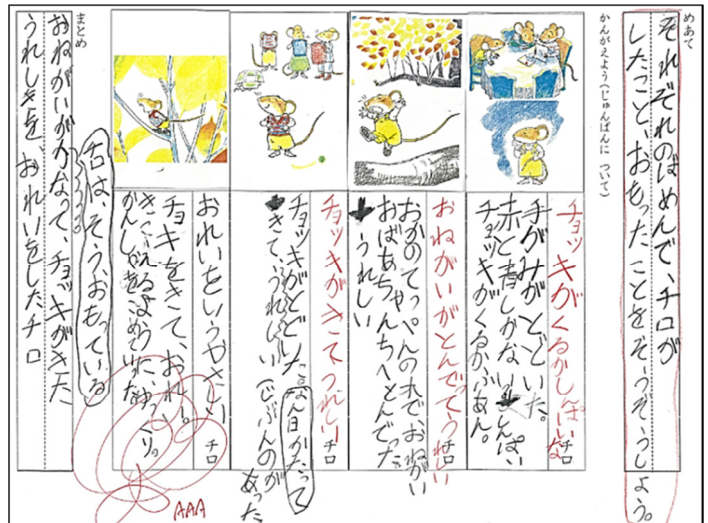 めあて
それぞれのばめんで、チロが
したこと、おもったことをそうぞうしよう。
かんがえよう(じゅんばんに ついて)
チョッキがくるかしんぱいな
チロ
手がみがとどいた。
赤と青しかない
しんぱい
チョッキがくるかふあん。
おねがいがとんでってうれしい
チロ
おかのてっぺんの木で、おねがい
おばあちゃんちへとんでった
うれしい
チョッキがきてうれしい
チロ
チョッキがとどいた
なん日かたって
きて、うれしい
じぶんのが
あった
おれいをいうやさしい
チロ
チョッキをきて、おれい。
きこえるようにゆっくり。
かんしゃをこめていった
AAA
チロは、そう、おもっている
まとめ
おねがいがかなって、チョッキがきた
うれしさを、おれいをしたチロ